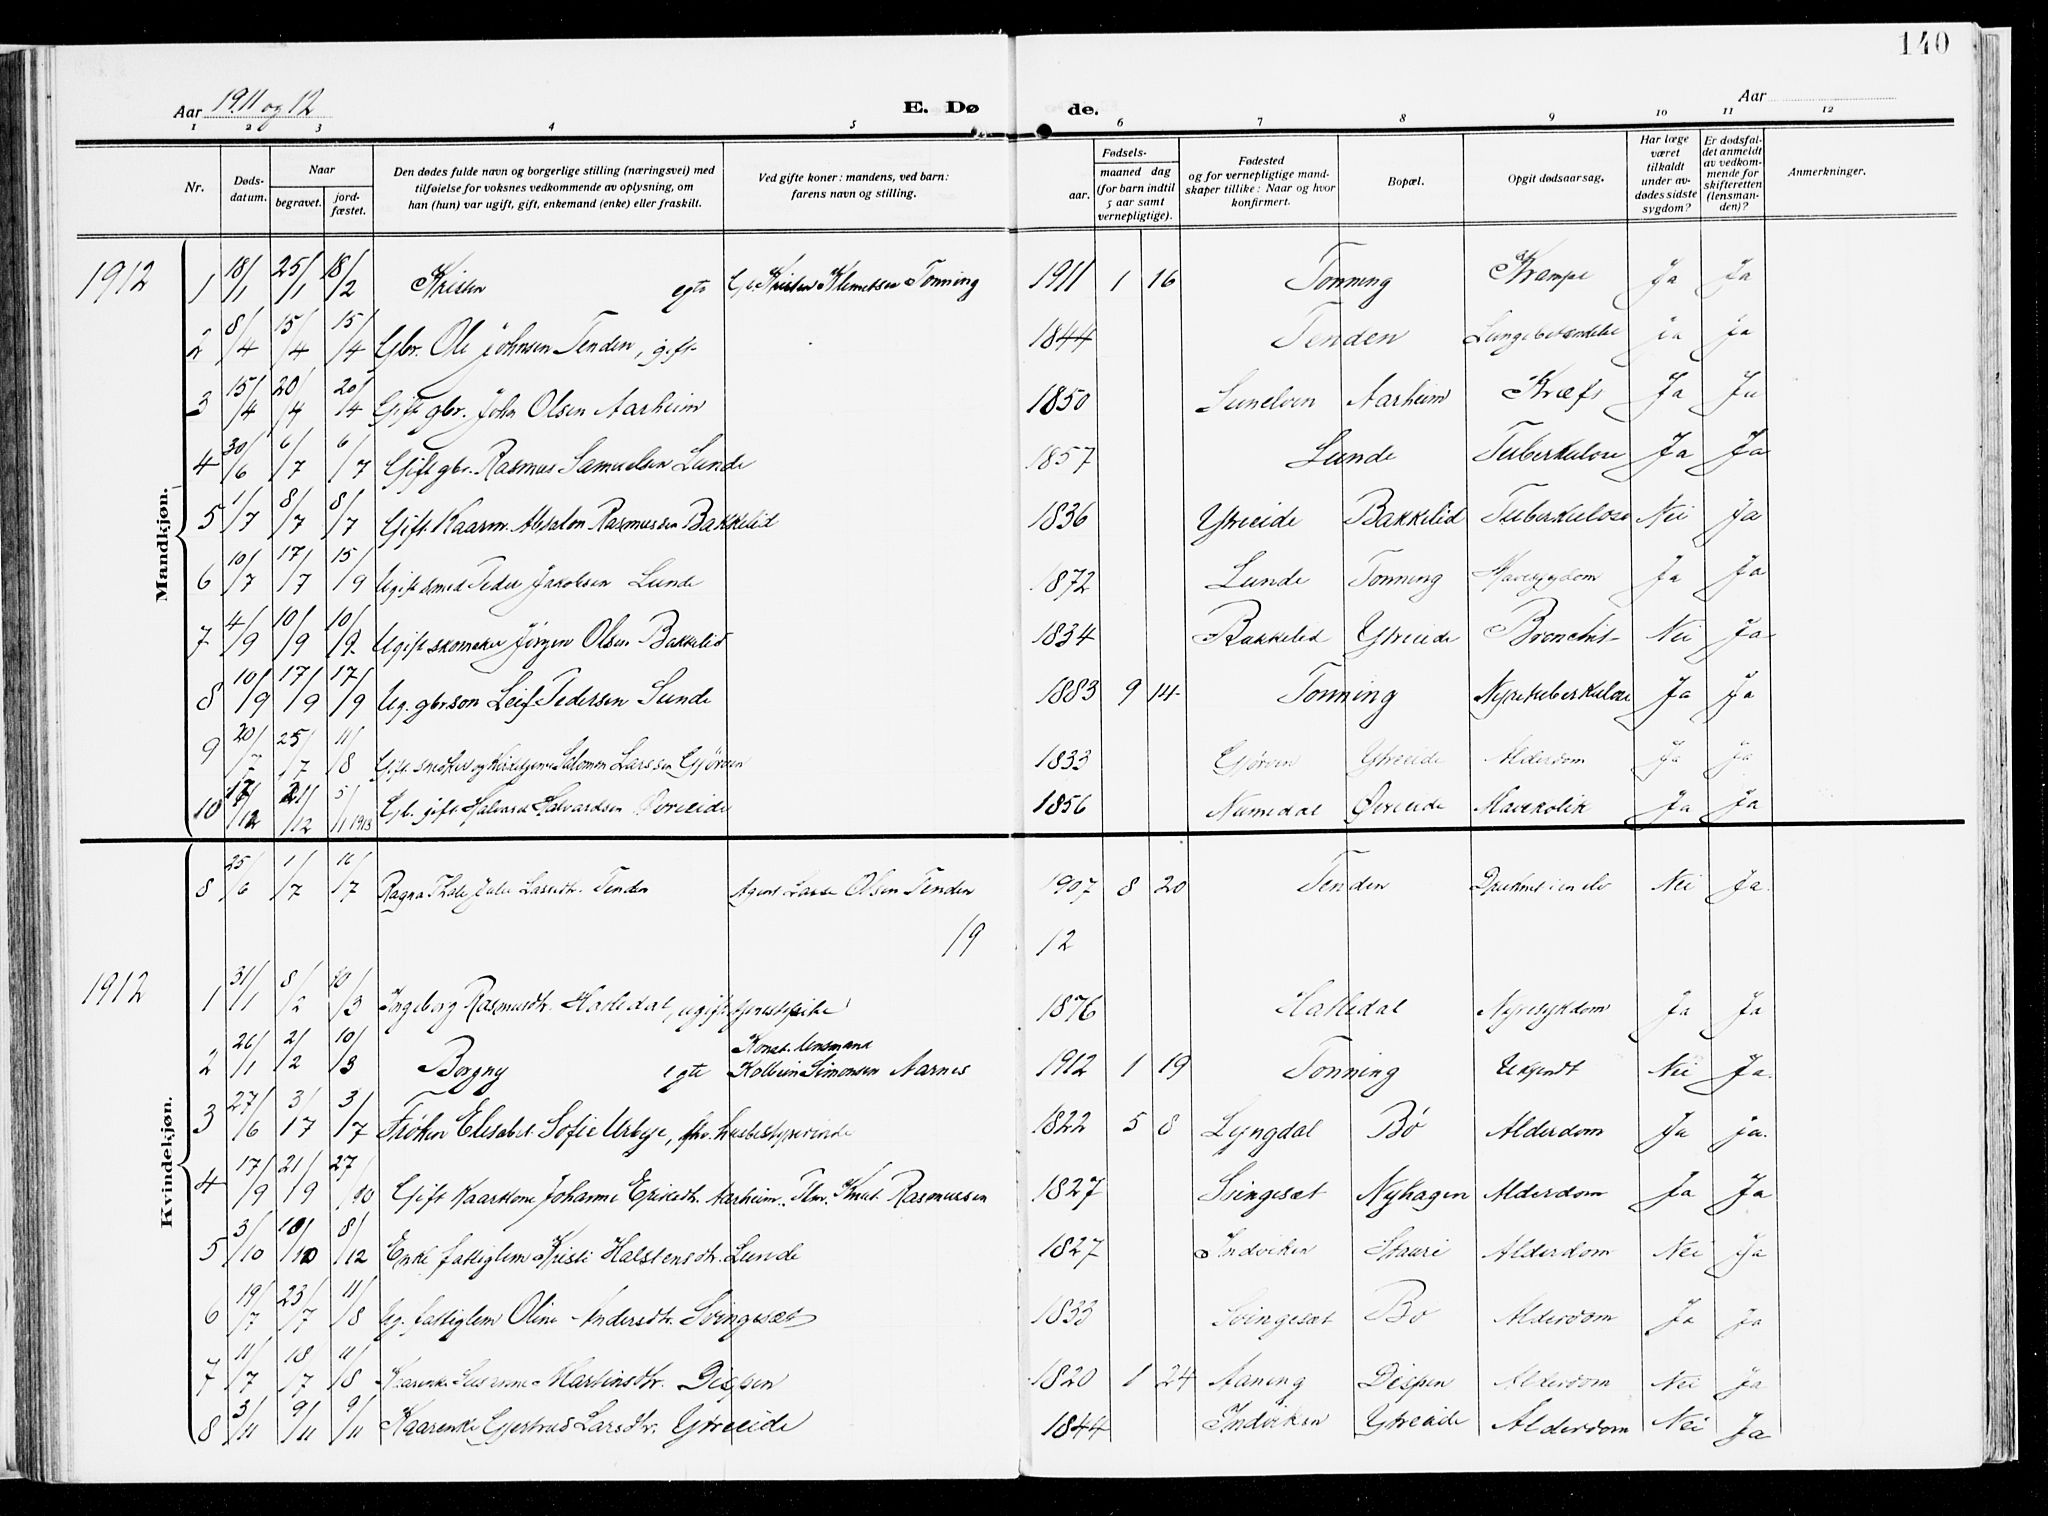 140
Aar 1911 og 12 E. Dø de. Aar
1 2 3 4 5 6 7 8 9 10 11 12
Nr. Døds-datum. Naar begravet. jord-fæstet. Den dødes fulde navn og borgerlige stilling (næringsvei) med tilføielse for voksnes vedkommende av oplysning, om han (hun) var ugift, gift, enkemand (enke) eller fraskilt. Ved gifte koner: mandens, ved barn: farens navn og stilling. Fødsels- aar. maaned dag (for barn indtil 5 aar samt vernepligtige). Fødested og for vernepligtige mandskaper tillike: Naar og hvor konfirmert. Bopæl. Opgit dødsaarsag. Har læge været tilkaldt under avdødes sidste sygdom? Er dødsfaldet anmeldt av vedkommende for skifteretten (lensmanden)? Anmerkninger.
Mandkjøn.
1912 1 18/1 25/1 18/2 Kristen egte Gb. Kristen Klemetsen Tonning 1911 1 16 Tonning Krampe Ja Ja
2 8/4 15/4 15/4 Gbr. Ole Johnsen Tenden, gift 1844 Tenden Lungebetændelse ja Ja
3 15/4 20/4 20/4 Gift gbr. John Olsen Aarheim 1850 Sunelven Aarheim Kræft Ja Ja
4 30/6 6/7 6/7 Gift gbr. Rasmus Samuelsen Lunde 1857 Lunde Tuberkulose Ja Ja
5 1/7 8/7 8/7 Gift Kaarm. Absalon Rasmussen Bakkelid 1836 Ytreeide Bakkelid Tuberkulose Nei Ja
6 10/7 17/7 15/9 Ugift smed Peder Jakobsen Lunde 1872 Lunde Tonning Mavesygdom Ja Ja
7 4/9 10/9 10/9 Ugift skomaker Jørgen Olsen Bakkelid 1834 Bakkelid Ytreeide Bronchit Nei Ja
8 10/9 17/9 17/9 Ug. gbrsøn Leif Pedersen Sunde 1883 9 14 Tonning Nyretuberkulose Ja Ja
9 20/7 25/7 11/8 Gift snedker og kirketjener Salomon Larssen Gjørven 1833 Gjørven Ytreeide Alderdom Ja Ja
10 17/12 21/12 5/1 1913 Gb. gift Halvard Halvardsen Øvreeide 1856 Numedal Øvreeide Mavekolik Ja Ja
Kvindekjøn.
8 25/6 1/7 16/7 Ragna Larsdtr. Tenden Agent Lasse Olsen Tenden 1907 8 20 Tenden Druknet i en elv Nei Ja.
19 12
1912 1 31/1 8/2 10/3 Ingeborg Rasmusdtr. Hakledal, ugift tjenestepike 1876 Hakledal Nyresykdom Ja Ja
Konst. lensmand
2 26/1 2/2 10/3 Borgny egte Kolbein Simonsen Aarnes 1912 1 19 Tonning Ukjendt Nei Ja.
3 27/6 3/7 3/7 Frøken Elisabet Sofie Urbye, fhv. husbestyrerinde 1822 5 8 Lyngdal Bø Alderdom Ja ja.
4 17/9 21/9 27/10 Gift Kaarkone Johanne Eriksdtr. Aarheim. Flm. Knut Rasmussen 1827 Svingesæt Nyhagen Alderdom Ja Ja
5 3/10 10/10 8/12 Enke fattiglem Kristi Halstensdtr. Lunde 1827 Indviken Stauri Alderdom Nei Ja
6 19/7 23/7 11/8 Ug. fattiglem Oline Andersdtr. Svingesæt 1833 Svingesæt Bø Alderdom Ja Ja
7 11/7 18/7 11/8 Kaarenke Martinsdtr. Dispen 1820 1 24 Aaning Dispen Alderdom Nei Ja
8 3/11 9/11 9/11 Kaarenke Gjertrud Larsdtr. Ytreeide 1844 Indviken Ytreeide Alderdom Nei Ja